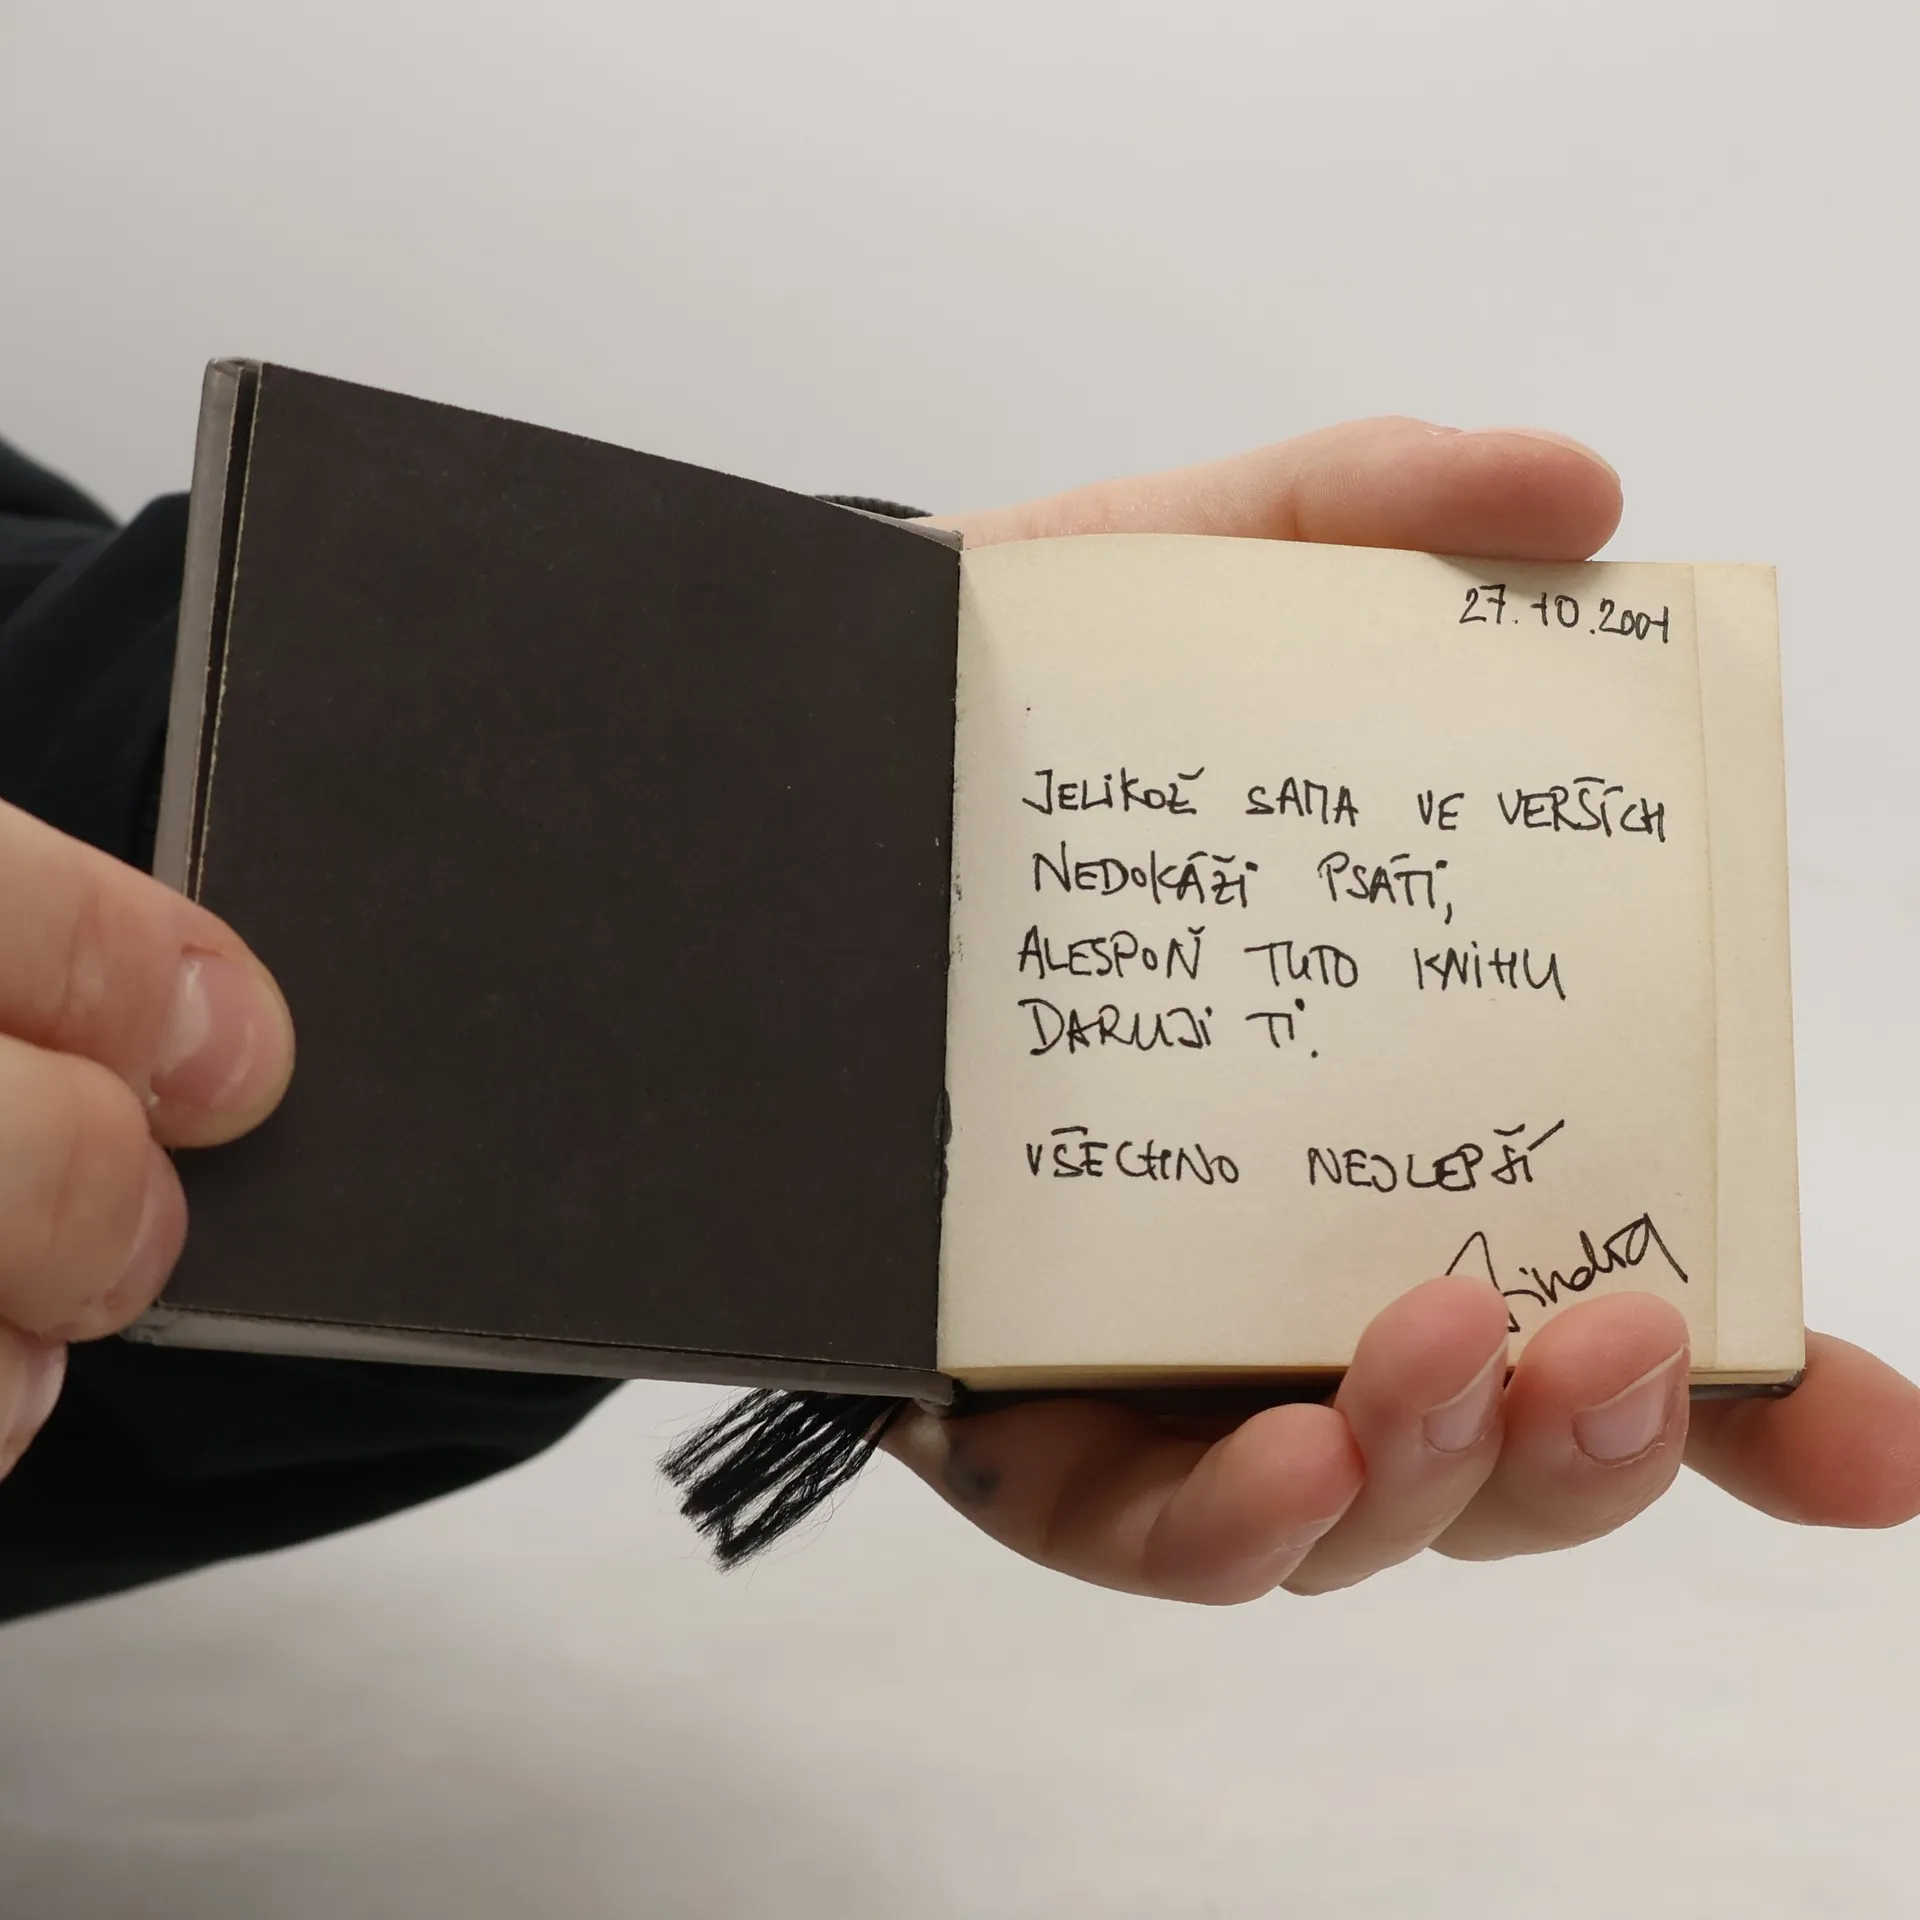 27.10.2001
JELIKOŽ SAMA VE VERŠÍCH
NEDOKÁŽI PSÁTI,
ALESPOŇ TUTO KNIHU
DARUJI TI.
VŠECHNO NEJLEPŠÍ
Jindra